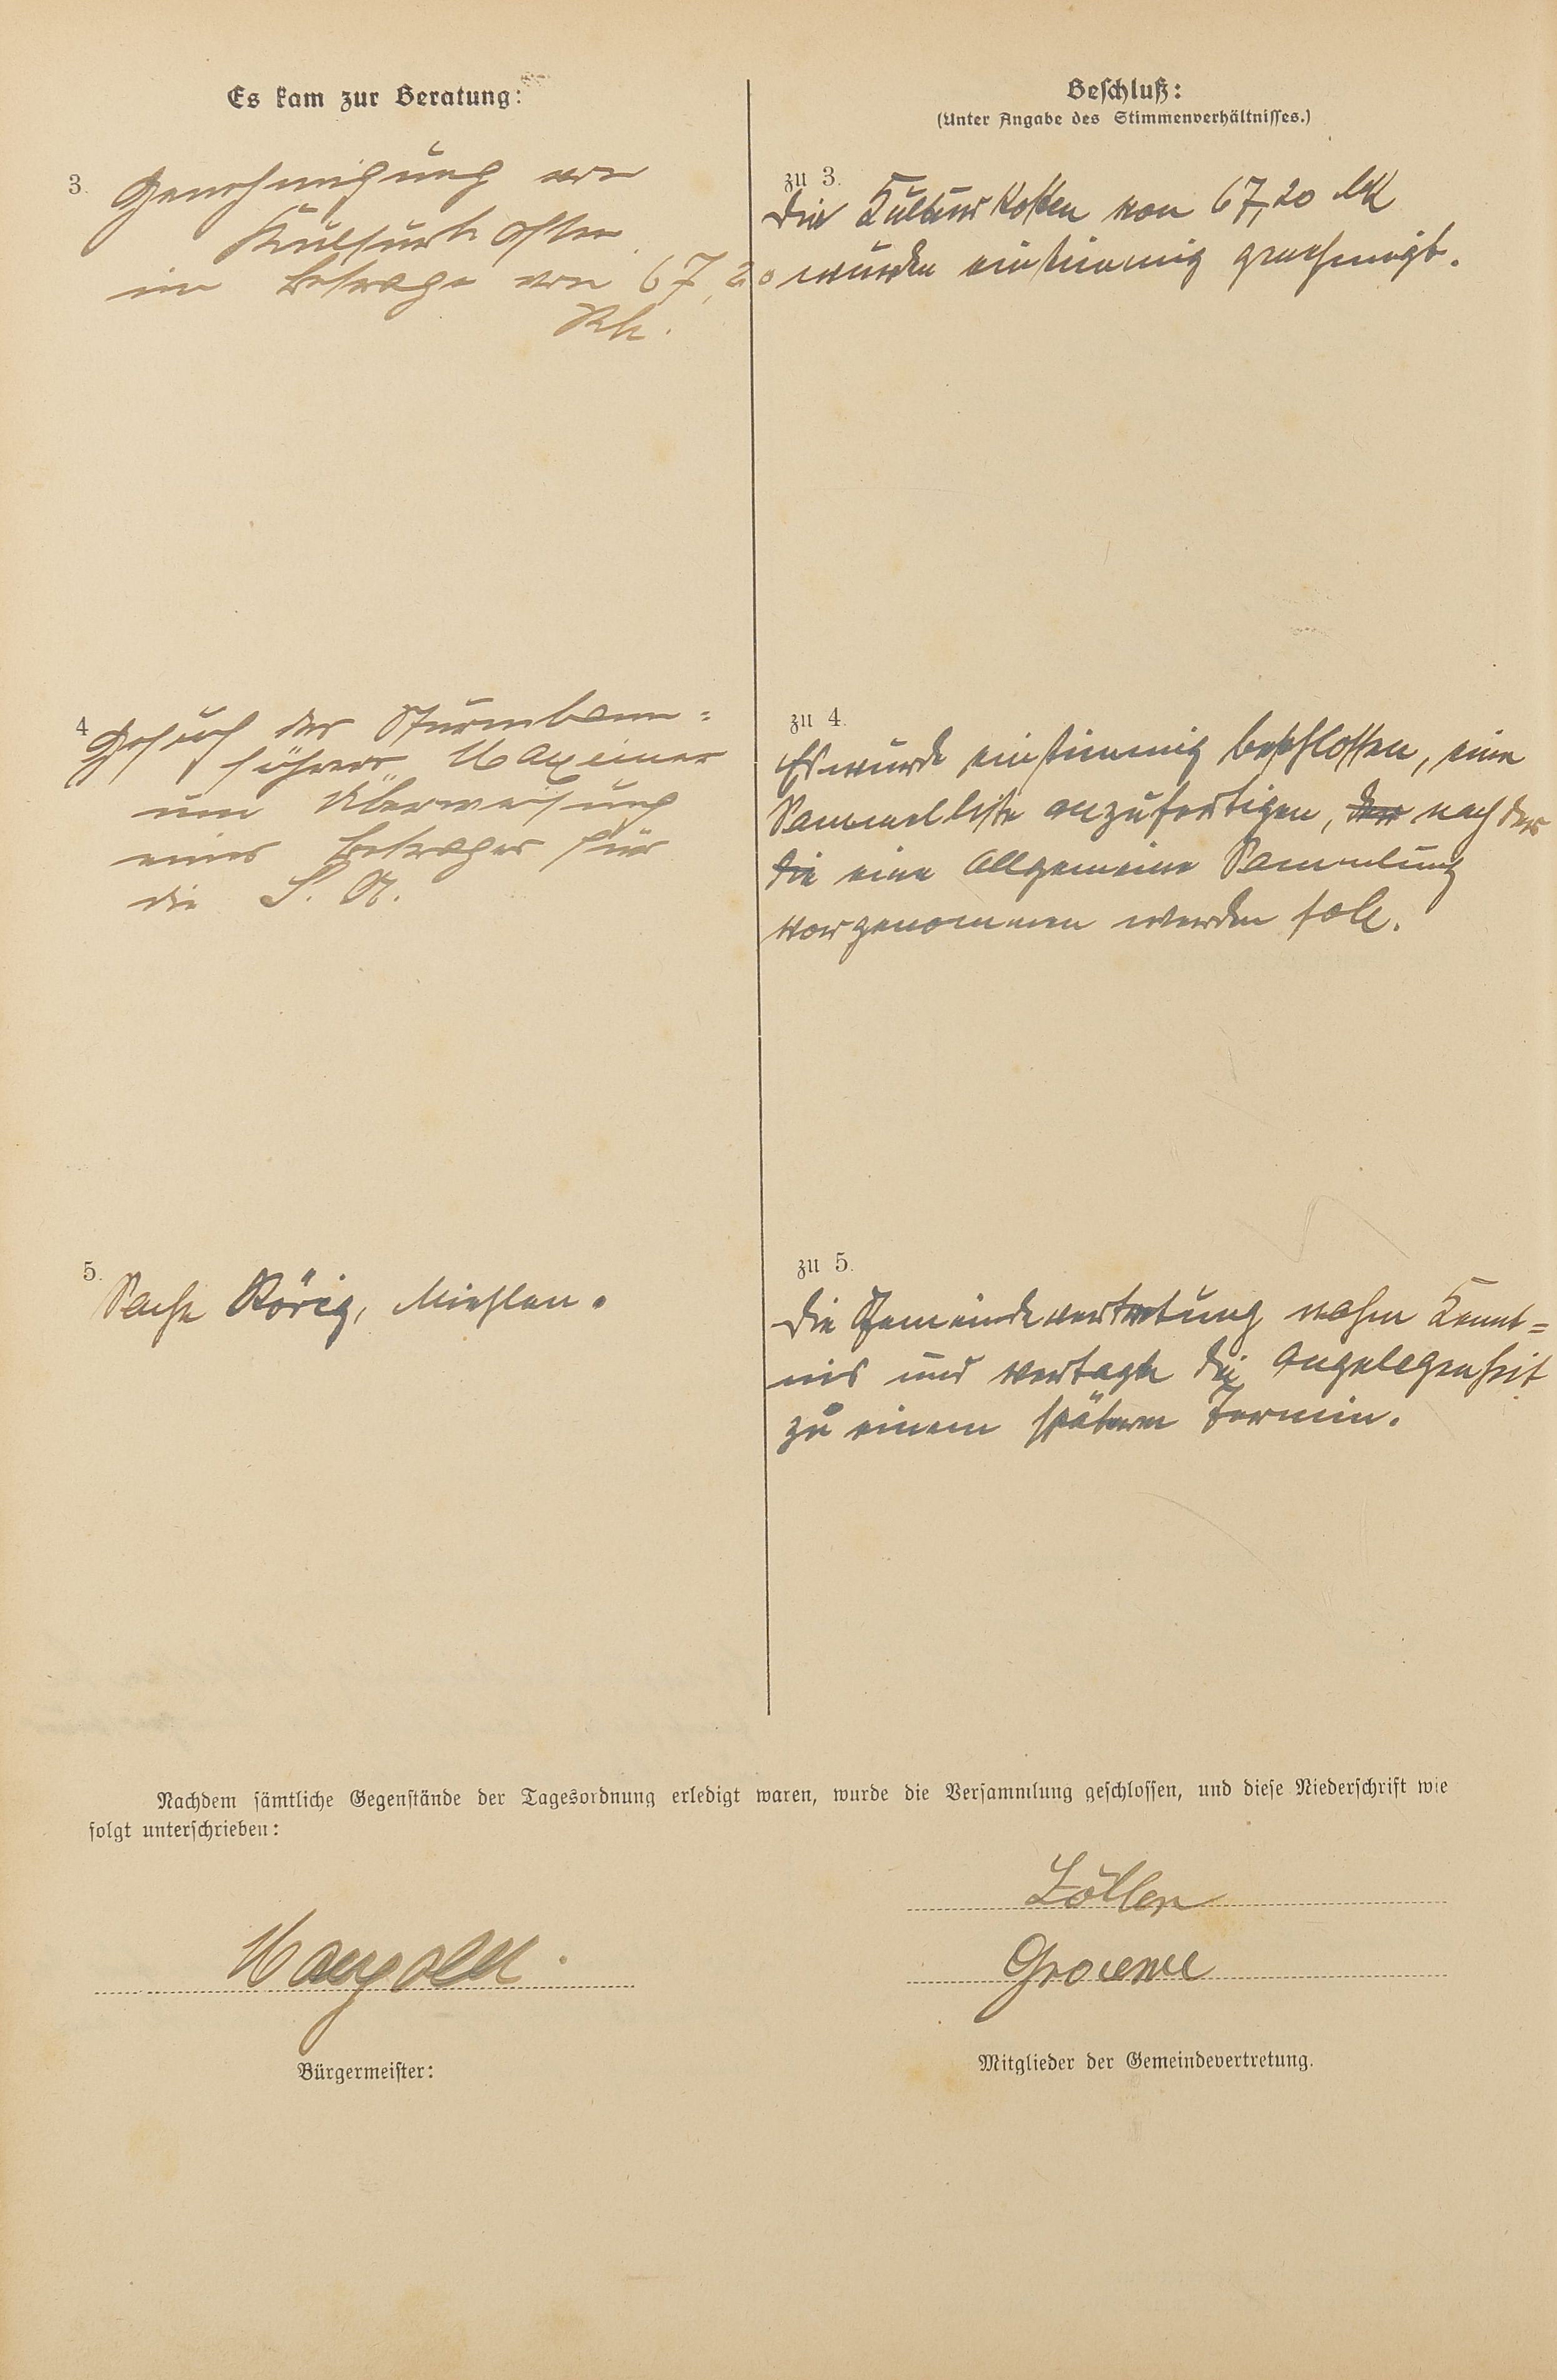 Es kam zur Beratung:
3. Genehmigung von
Kulturkosten
im Betrage von 67,20
Rk.
4. Gesuch des Sturmbann=
führers Maxeiner
um Überweisung
eines Betrages für
die S. A.
5. Sache Körig, Miehlen.
Beschluß:
(Unter Angabe des Stimmenverhältnisses.)
zu 3.
Die Kulturkosten von 67,20 Mk
wurden einstimmig genehmigt.
zu 4.
Es wurde einstimmig beschlossen, eine
Sammelliste anzufertigen, nach der
die eine allgemeine Sammlung
vorgenommen werden soll.
zu 5.
Die Gemeindevertretung nahm Kennt=
nis und vertagte die Angelegenheit
zu einem spätern Termin.
Nachdem sämtliche Gegenstände der Tagesordnung erledigt waren, wurde die Versammlung geschlossen, und diese Niederschrift wie
folgt unterschrieben:
Bürgermeister:
Mitglieder der Gemeindevertretung.